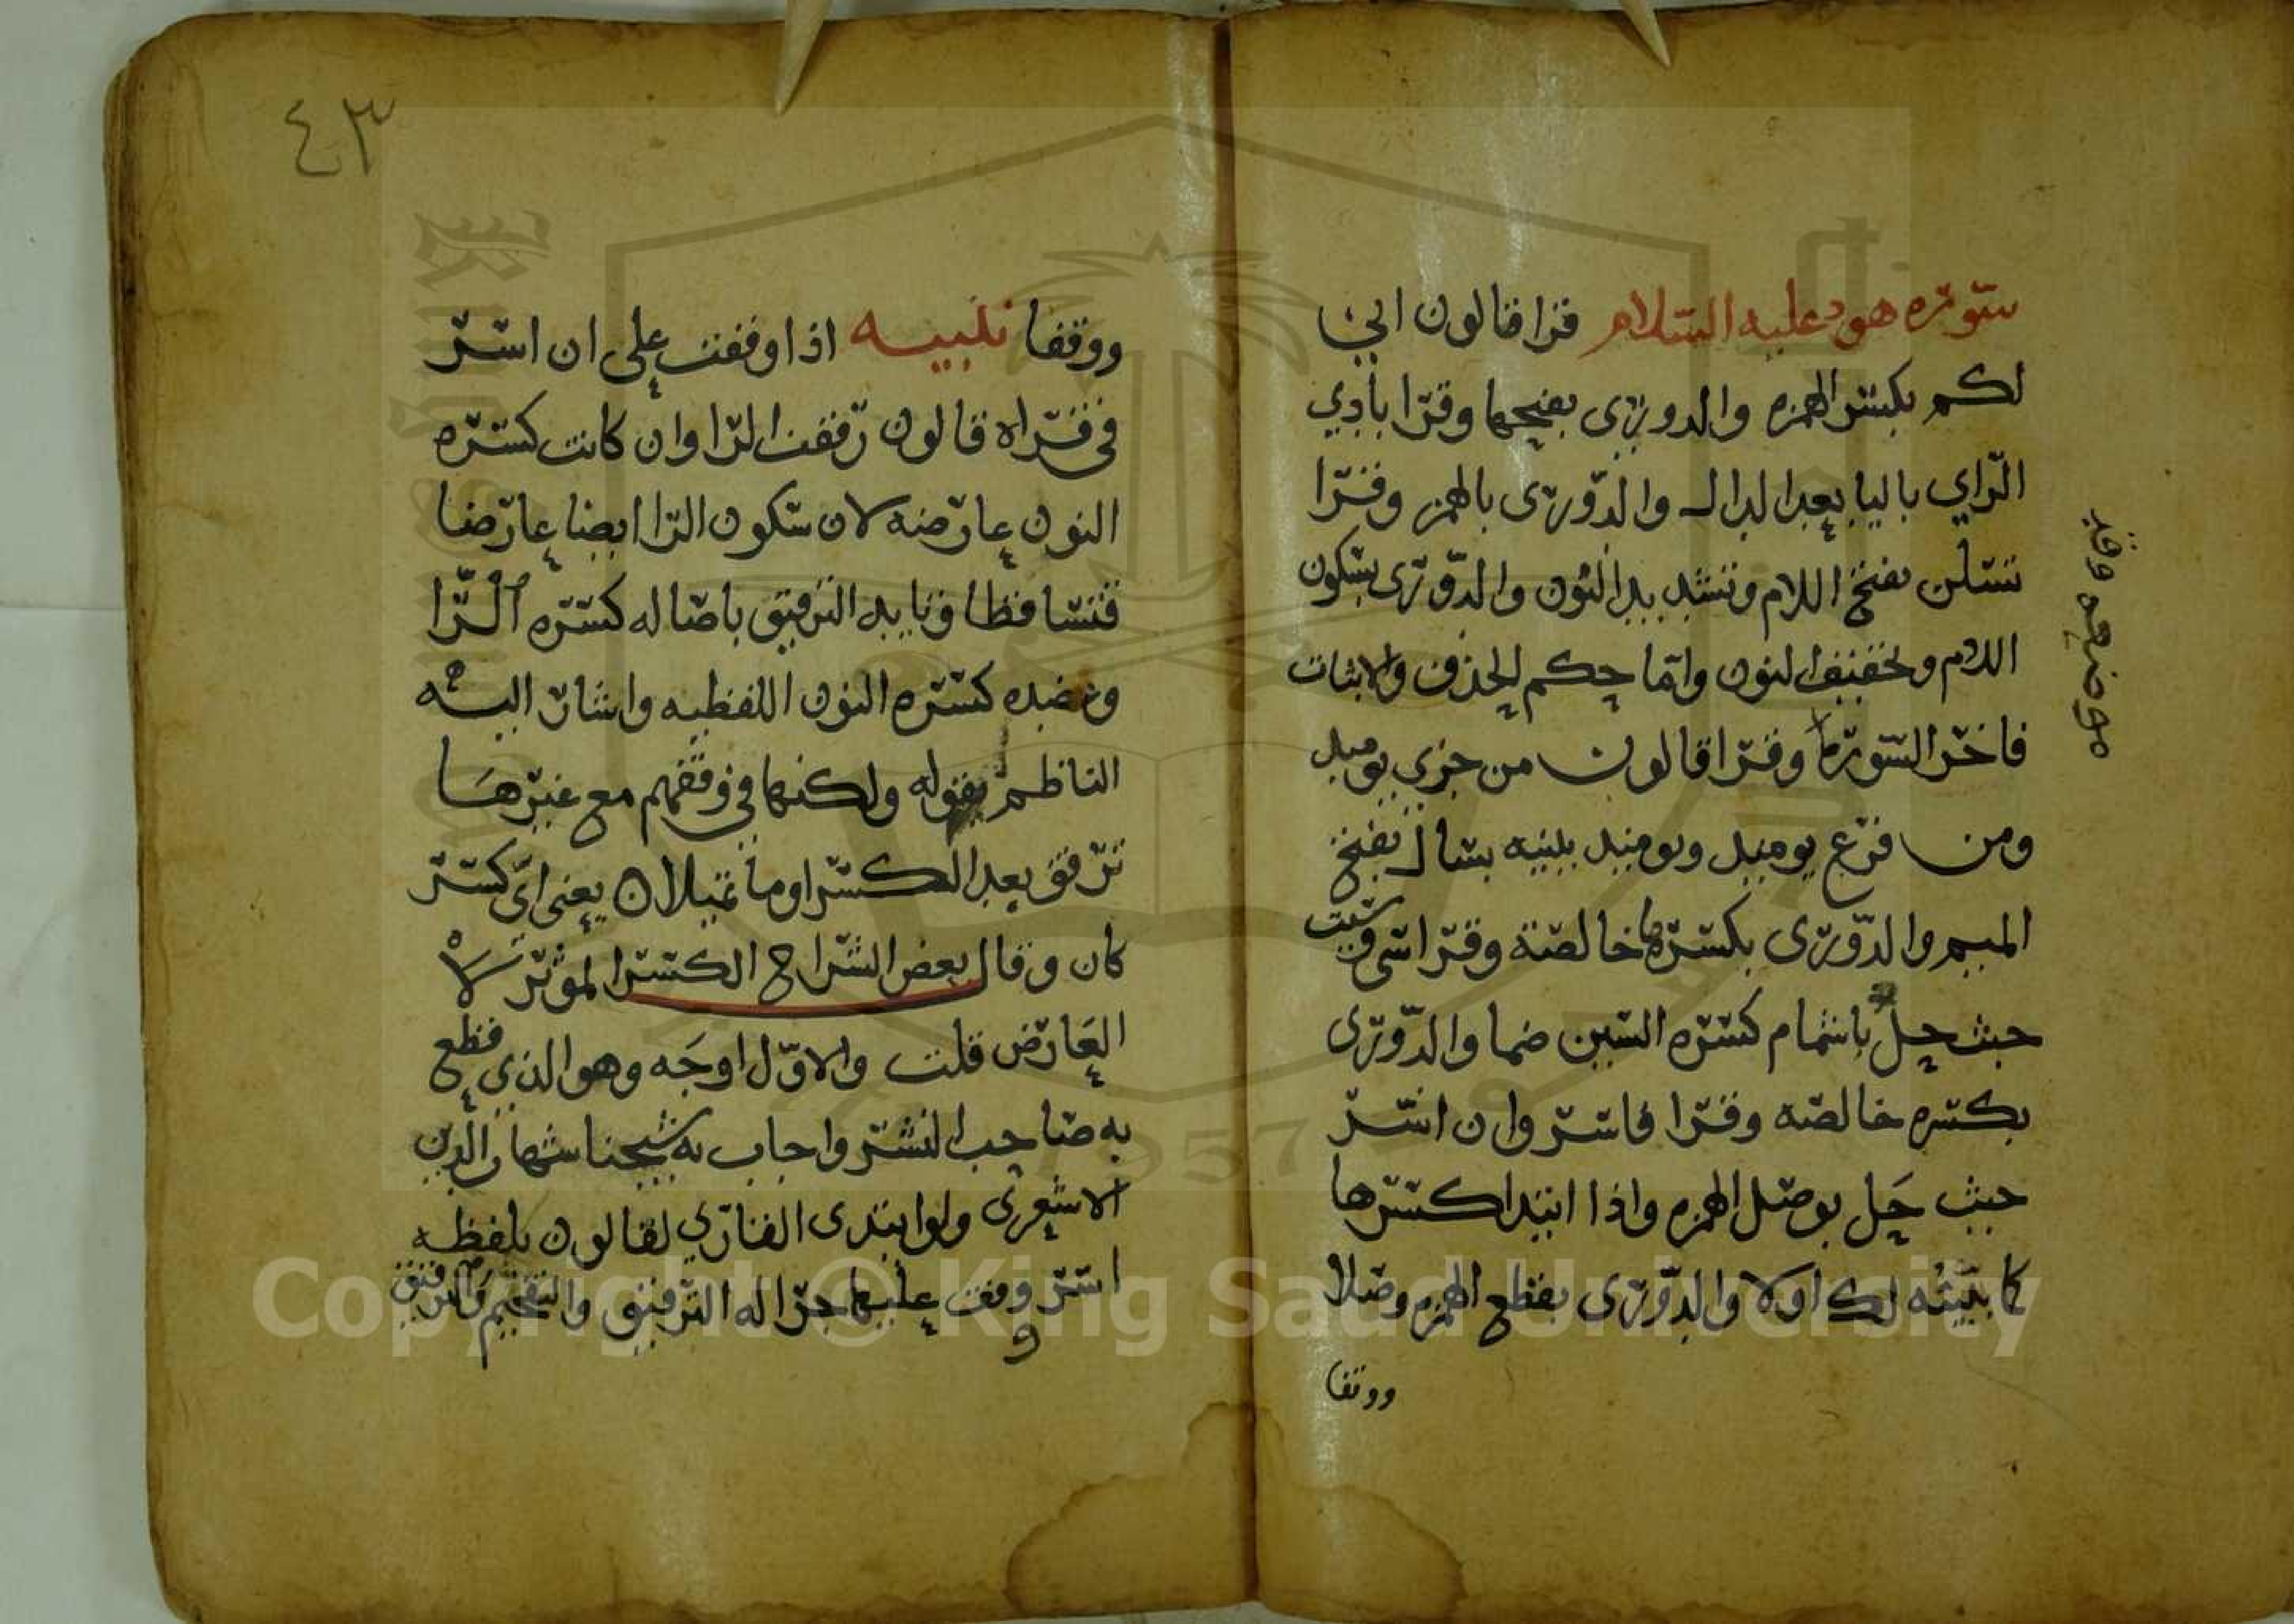 سورة هود عليه السلام قرا قالون اني
لكم بكسر الهمزه والدوري بفتحها وقرا بادي
الراي باليا بعد الدال والدوري بالهمز وقرا
تسئلن بفتح اللام وتشديد النون والدوري بسكون
اللام وتخفيف النون واما حكم الحذف والاثبات
فاخر السورة وقرا قالون من خزي يوميد
ومن فزع يوميد ويوميد ببنيه بسال بفتح
الميم والدوري بكسرها خالصة وقرا سي وسيت
حيث حل باشمام كسره السين ضما والدوري
بكسره خالصه وقرا فاسر وان اسر
حيث حل بوصل الهمزه واذا ابتدا كسرها
كما بينته لك اولا والدوري بقطع الهمزه وصلا
ووقفا
موضعه وقد
٤٣
ووقفا تنبيه اذا وقفت على ان اسر
في قراه قالون رققت الرا وان كانت كسره
النون عارضه لان سكون الرا ايضا عارضا
فتساقطا وتايد الترقيق باصاله كسره الرا
وعضده كسره النون اللفظيه واشار اليه
الناظم بقوله ولكنها في وقفهم مع غيرها
ترقق بعد الكسر او ما تميلا ن يعني اي كسر
كان وقال بعض الشراح الكسر الموثر لا
العارض قلت والاول اوجه وهو الذي قطع
به صاحب النشر واجاب به شيخنا شهاب الدين
الاشعري ولو ابتدى القاري لقالون بلفظه
اسر وقف عليها جرا له الترقيق والتفخيم والترقيق
Copyright © King Saud University
1957